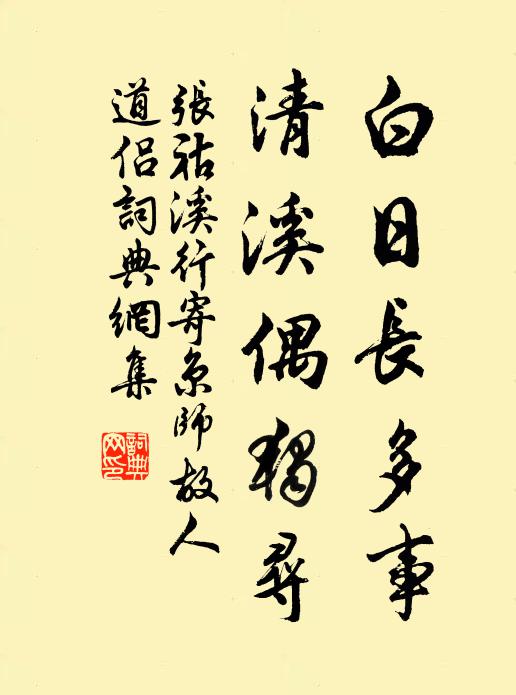 白日長多事
清溪偶獨尋
張祜溪行寄京師故人
道侶詞典網集
詞典網印